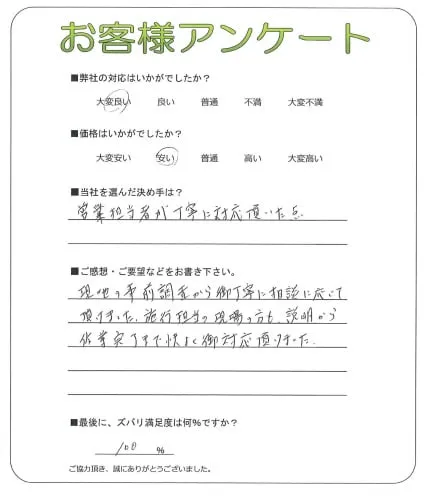 お客様アンケート
■弊社の対応はいかがでしたか?
大変良い 良い 普通 不満 大変不満
■価格はいかがでしたか?
大変安い 安い 普通 高い 大変高い
■当社を選んだ決め手は?
営業担当者が丁寧に対応頂いた点
■ご感想・ご要望などをお書き下さい。
現地の事前調査から御丁寧に相談に応じて
頂けました。施行担当の現場の方も、説明から
作業完了まで快よく御対応頂けました。
■最後に、ズバリ満足度は何%ですか?
100 %
ご協力頂き、誠にありがとうございました。